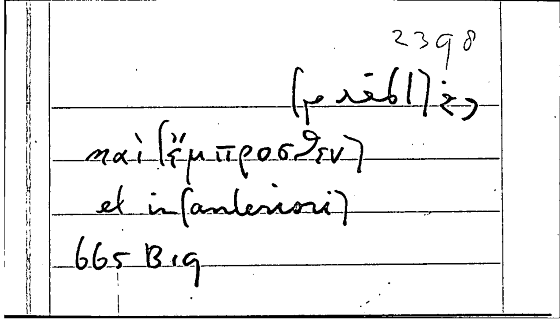 2398
καὶ [ἔμπροσθεν]
et in [anteriori]
665 B 19